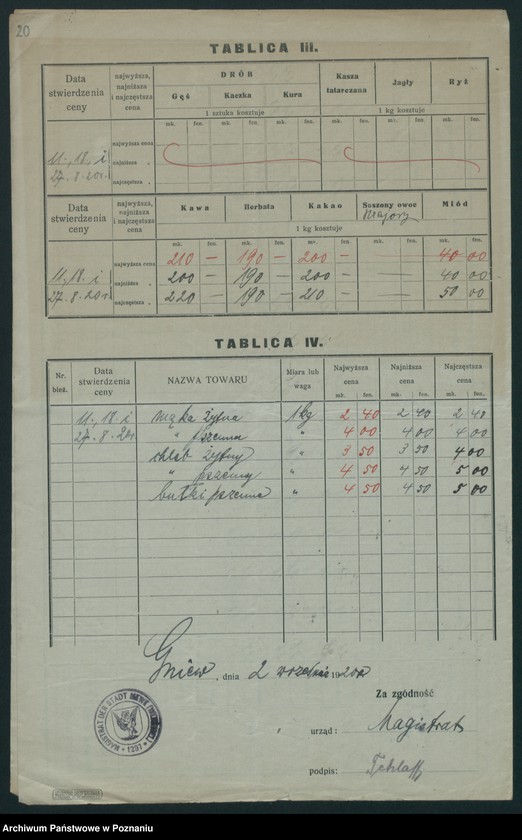 20
TABLICA III.
Data stwierdzenia ceny
najwyższa, najniższa i najczęstsza cena
DRÓB
Gęś
Kaczka
Kura
Kasza tatarczana
Jagły
Ryż
1 sztuka kosztuje
1 kg kosztuje
mk. fen. mk. fen. mk. fen. mk. fen. mk. fen. mk. fen.
najwyższa cena
11., 18. i
najniższa "
27. 8. 20 r.
najczęstsza "
Data stwierdzenia ceny
najwyższa, najniższa i najczęstsza cena
Kawa
Herbata
Kakao
Suszony owoc
Miód
1 kg kosztuje
mk. fen. mk. fen. mk. fen. mk. fen.
najwyższa cena 210 — 190 — 200 — — 40 00
11., 18. i najniższa " 200 — 190 — 200 — — 40 00
27. 8. 20 r. najczęstsza " 220 — 190 — 210 — — 50 00
TABLICA IV.
Nr. bież.
Data stwierdzenia ceny
NAZWA TOWARU
Miara lub waga
Najwyższa cena
Najniższa cena
Najczęstsza cena
mk. fen. mk. fen. mk. fen.
11., 18. i mąka żytna 1 kg 2 40 2 40 2 40
27. 8. 20 r. " pszenna " 4 00 4 00 4 00
chleb żytny " 3 50 3 50 4 00
" pszenny " 4 50 4 50 5 00
bułki pszenne " 4 50 4 50 5 00
Gniew, dnia 2 września 1920 r
Za zgodność
MAGISTRAT DER STADT MEWE
1297
urząd: Magistrat
podpis:
Archiwum Państwowe w Poznaniu